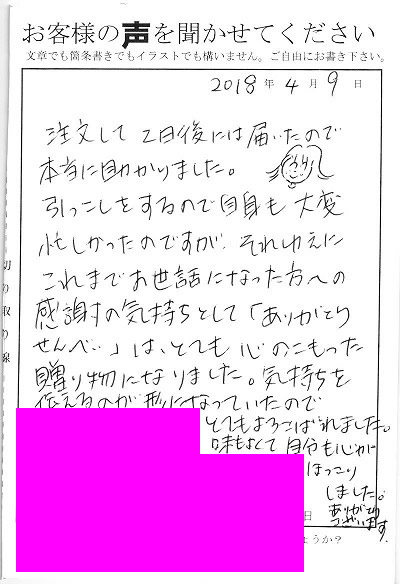 お客様の声を聞かせてください
文章でも箇条書きでもイラストでも構いません。ご自由にお書き下さい。
2018年 4月 9日
注文して2日後には届いたので
本当に助かりました。
引っこしをするので自身も大変
忙しかったのですが、それゆえに
これまでお世話になった方への
感謝の気持ちとして「ありがとう
せんべい」は、とても心のこもった
贈り物になりました。気持ちを
伝えるのが形になっていたので
とてもよろこばれました。
味もよくて自分も心が
ほっこり
しました。
ありがとう
ございます
日
ょうか？
切り取り線